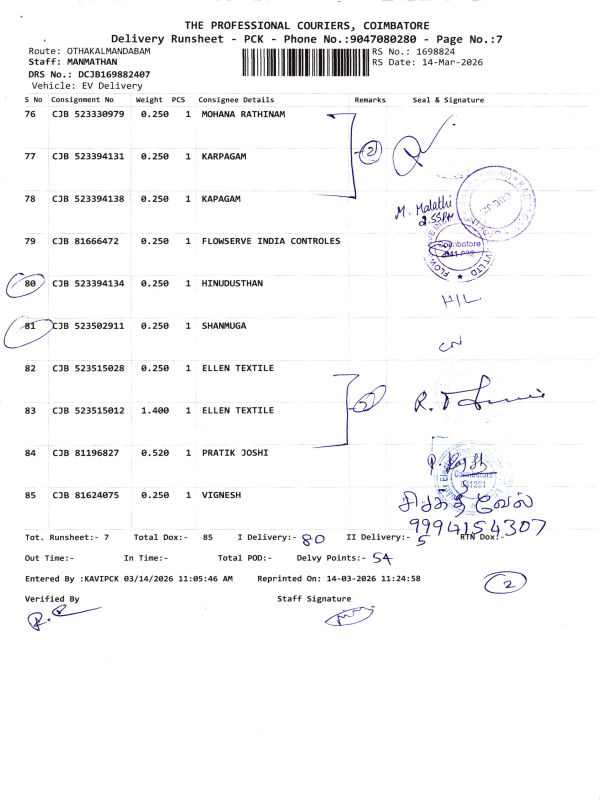 THE PROFESSIONAL COURIERS, COIMBATORE
Delivery Runsheet - PCK - Phone No.:9047080280 - Page No.:7
Route: OTHAKALMANDABAM RS No.: 1698824
Staff: MANMATHAN RS Date: 14-Mar-2026
DRS No.: DCJB169882407
Vehicle: EV Delivery
S No Consignment No Weight PCS Consignee Details Remarks Seal & Signature
76 CJB 523330979 0.250 1 MOHANA RATHINAM
77 CJB 523394131 0.250 1 KARPAGAM 2
78 CJB 523394138 0.250 1 KAPAGAM
M. Malathi
2.55PM
79 CJB 81666472 0.250 1 FLOWSERVE INDIA CONTROLES
Coimbatore
80 CJB 523394134 0.250 1 HINDUSTHAN
H/L
81 CJB 523502911 0.250 1 SHANMUGA
CN
82 CJB 523515028 0.250 1 ELLEN TEXTILE
83 CJB 523515012 1.400 1 ELLEN TEXTILE
84 CJB 81196827 0.520 1 PRATIK JOSHI
Coimbatore
85 CJB 81624075 0.250 1 VIGNESH
சக்தி வேல்
9994154307
Tot. Runsheet:- 7 Total Dox:- 85 I Delivery:- 80 II Delivery:- 5 RTN Dox:-
Out Time:- In Time:- Total POD:- Delvy Points:- 54
Entered By :KAVIPCK 03/14/2026 11:05:46 AM Reprinted On: 14-03-2026 11:24:58
2
Verified By Staff Signature